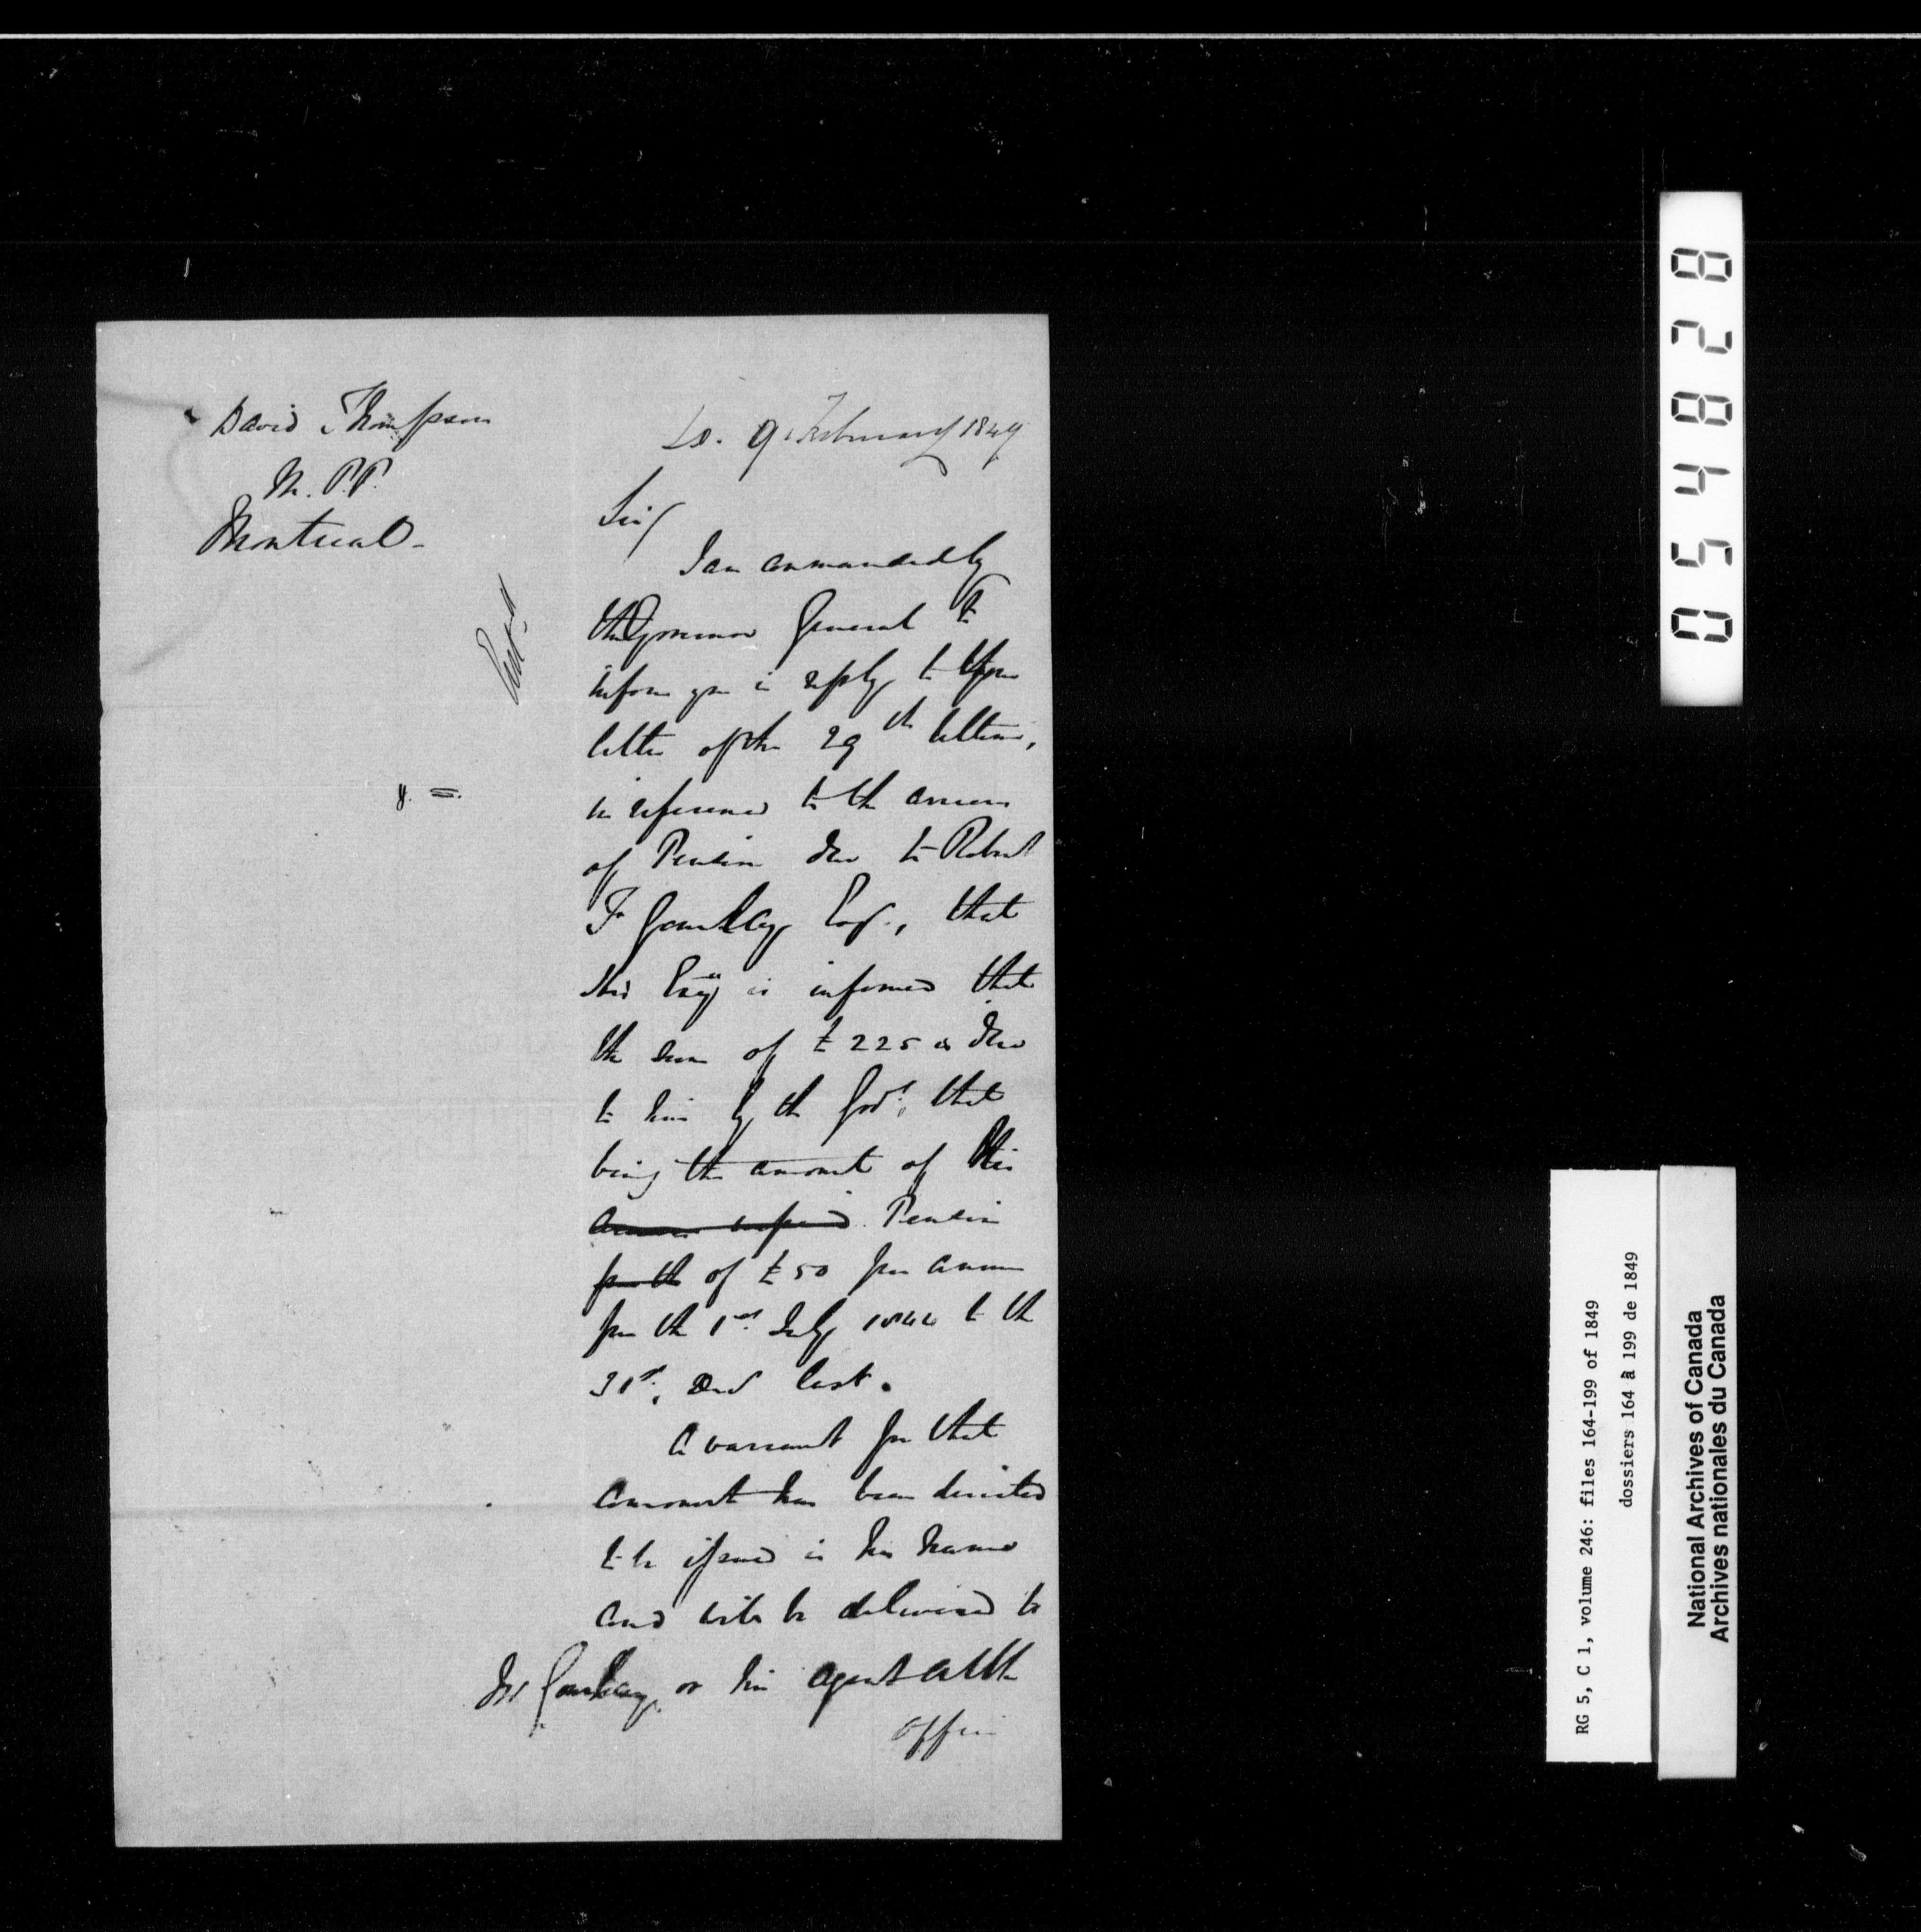 David Thompson
M.P.P.
Montreal -
9 February 1849
Sir/
I am commanded by
the Governor General to
inform you in reply to your
letter of the 29th Ultimo,
in reference to the arrears
of Pension due to Robert
F Gourlay Esq., that
His Exy is informed that
the sum of £225 is due
to him by the Govt. that
being the amount of his
Arrears unpaid Pension
for the of £50 per annum
from the 1st July 1844 to the
31st, Decr last.
A warrant for that
amount has been directed
to be issued in his name
and will be delivered to
Mr Gourlay or his agent at the
Office
054828
RG 5, C 1, volume 246: files 164-199 of 1849
dossiers 164 à 199 de 1849
National Archives of Canada
Archives nationales du Canada